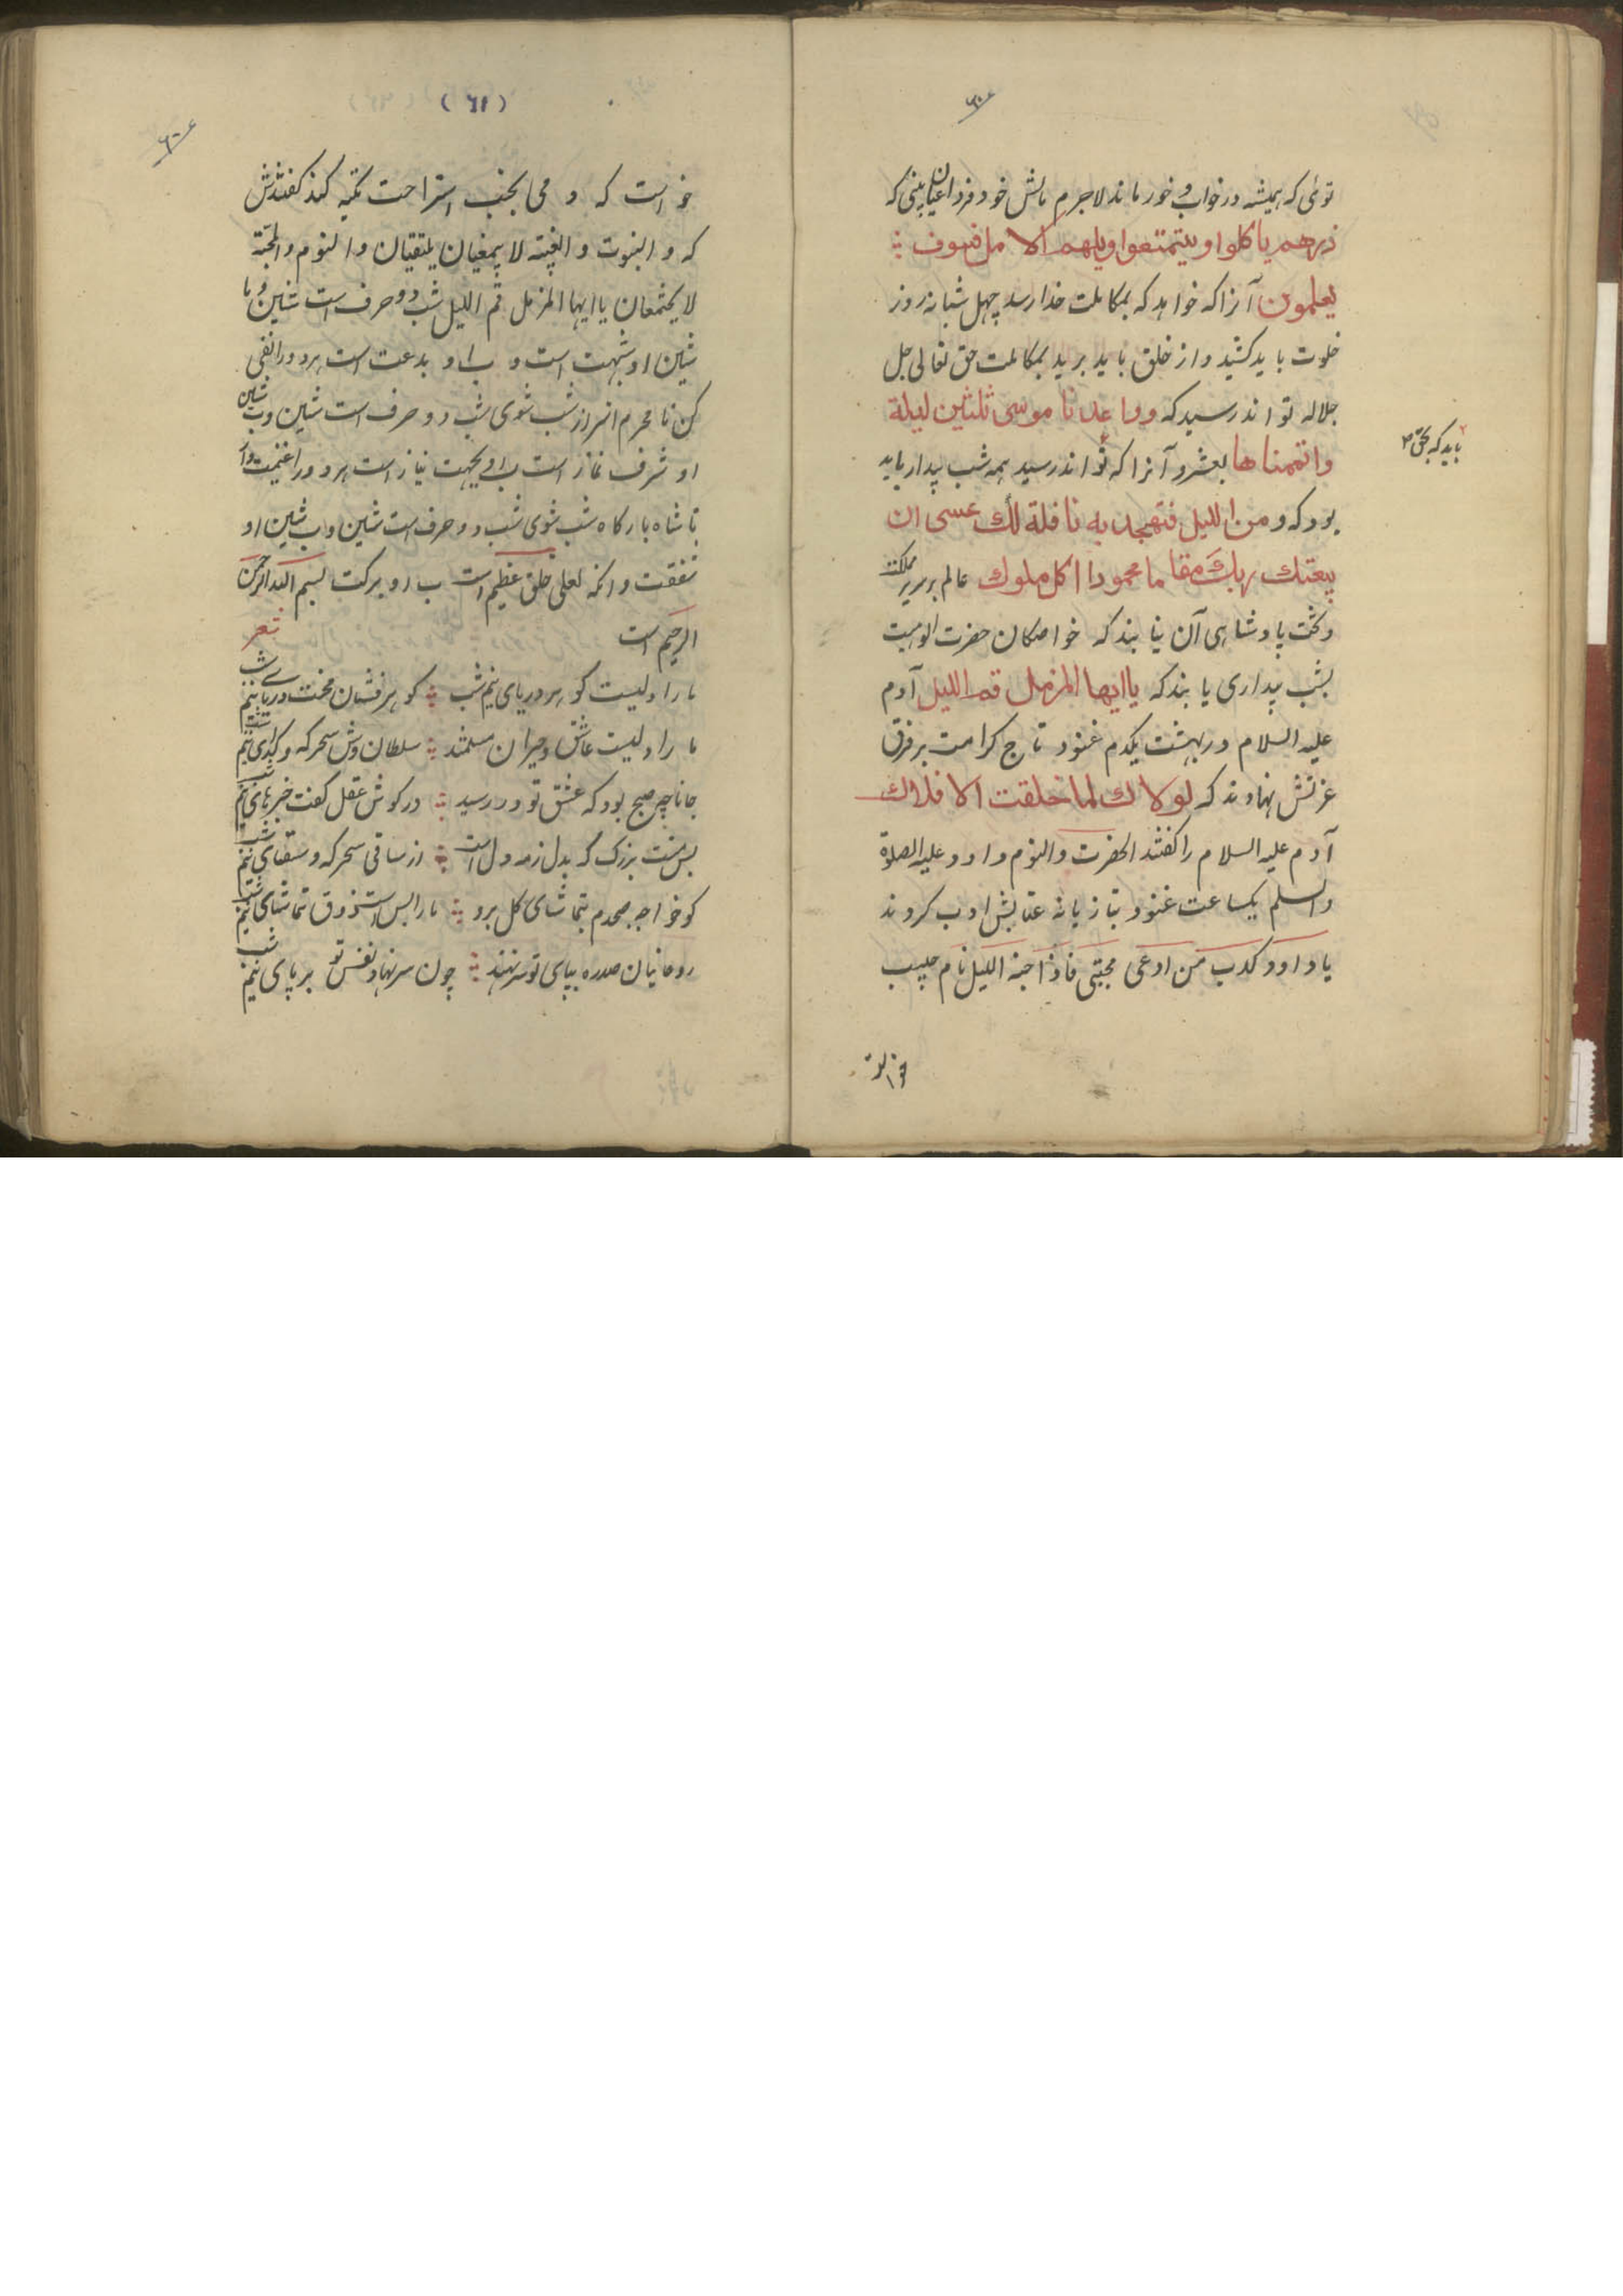 توئی که همیشه در خواب و خور ماند لاجرم مالش خود فردا عیان بینی که
ذرهم یاکلوا ویتمتعوا ویلههم الامل فسوف
یعلمون آنرا که خواهد که بمکالمت خدا رسد چهل شبانه روز
خلوت باید کشید و از خلق باید برید بمکالمت حق تعالی جل
جلاله تواند رسید که وواعدنا موسی ثلثین لیلة
واتممناها بعشر و آنرا که تواند رسید همه شب بیدار باید
باید که بحق
بود که ومن اللیل فتهجد به نافلة لك عسی ان
یبعثك ربك مقاما محمودا اکل ملوك عالم بر سریر مملکت
و تخت پادشاهی آن نیابند که خواصکان حضرت الوهیت
بشب بیداری یابند که یا ایها المزمل قم اللیل آدم
علیه السلام در بهشت یکدم غنود تاج کرامت بر فرق
عزتش نهادند که لولاك لما خلقت الافلاك
آدم علیه السلام را کفتند الحضرت والنوم داود علیه الصلوة
والسلم یکساعت غنود بتازیانه عتابش ادب کردند
یا داود کذب من ادعی محبتی فاذا جنه اللیل نام حبیب
(٦١)
خواست که دمی بجنب استراحت تکیه کند کفتندش
که و النبوت و الغیبة لا یلتقیان والنوم والمحبة
لا یجتمعان یا ایها المزمل قم اللیل شب دو حرف است شین و با
شین او شبهت است و ب او بدعت است هر دو را نفی
کن تا محرم اسرار شب شوی شب دو حرف است شین و ب شین
او شرف نماز است ب او بجهت نیاز است هر دو را غنیمت دار
تا شاه بارکاه شب شوی شب دو حرف است شین و ب شین او
شفقت وانك لعلی خلق عظیم است ب او برکت بسم الله الرحمن
الرحیم است شعر
ما را دلیست کوهر دریای نیم شب کوهر فشان محنت دریای نیم شب
ما را دلیست عاشق و حیران مستمند سلطان وش سحرکه و کدای نیم شب
جانا چه صبح بود که عشق تو در رسید در کوش عقل کفت خبرهای نیم شب
بس منت بزرک که بدل زمه دل است از ساقی سحرکه و سقای نیم شب
کو خواجه صبحدم بتماشای کل برو ما را بس است ذوق تماشای نیم شب
روحانیان صدره بپای تو سر نهند چون سر نهاد نفس تو بر پای نیم شب